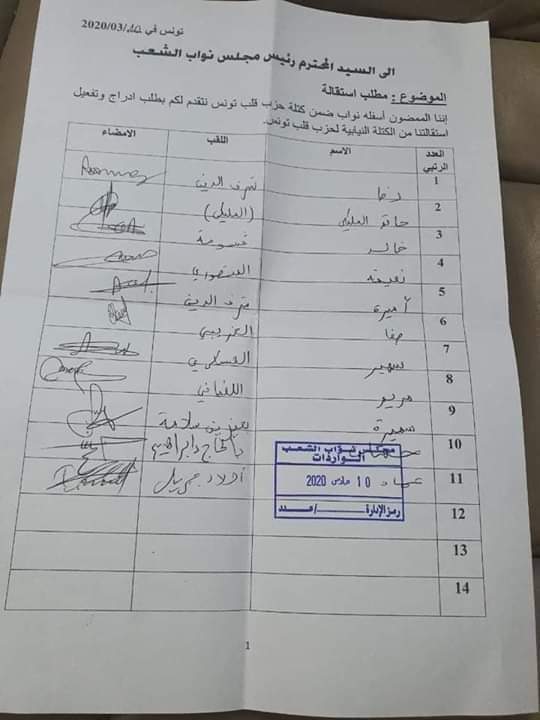 تونس في 10/03/2020
الى السيد المحترم رئيس مجلس نواب الشعب
الموضوع : مطلب استقالة
إننا الممضون أسفله نواب ضمن كتلة حزب قلب تونس نتقدم لكم بطلب ادراج وتفعيل
استقالتنا من الكتلة النيابية لحزب قلب تونس.
العدد الرتبي الاسم اللقب الامضاء
1 رضا شرف الدين
2 حاتم المليكي (المليكي)
3 خالد قسومة
4 نعيمة المنصوري
5 أميرة شرف الدين
6 صفا الغريبي
7 سهير العسكري
8 مريم اللغماني
9 سميرة بن سلامة
10 بالحاج ابراهيم
11 عماد أولاد جبريل
12
13
14
مجلس نواب الشعب
الواردات
10 مارس 2020
رمز الإدارة ....../عدد
1